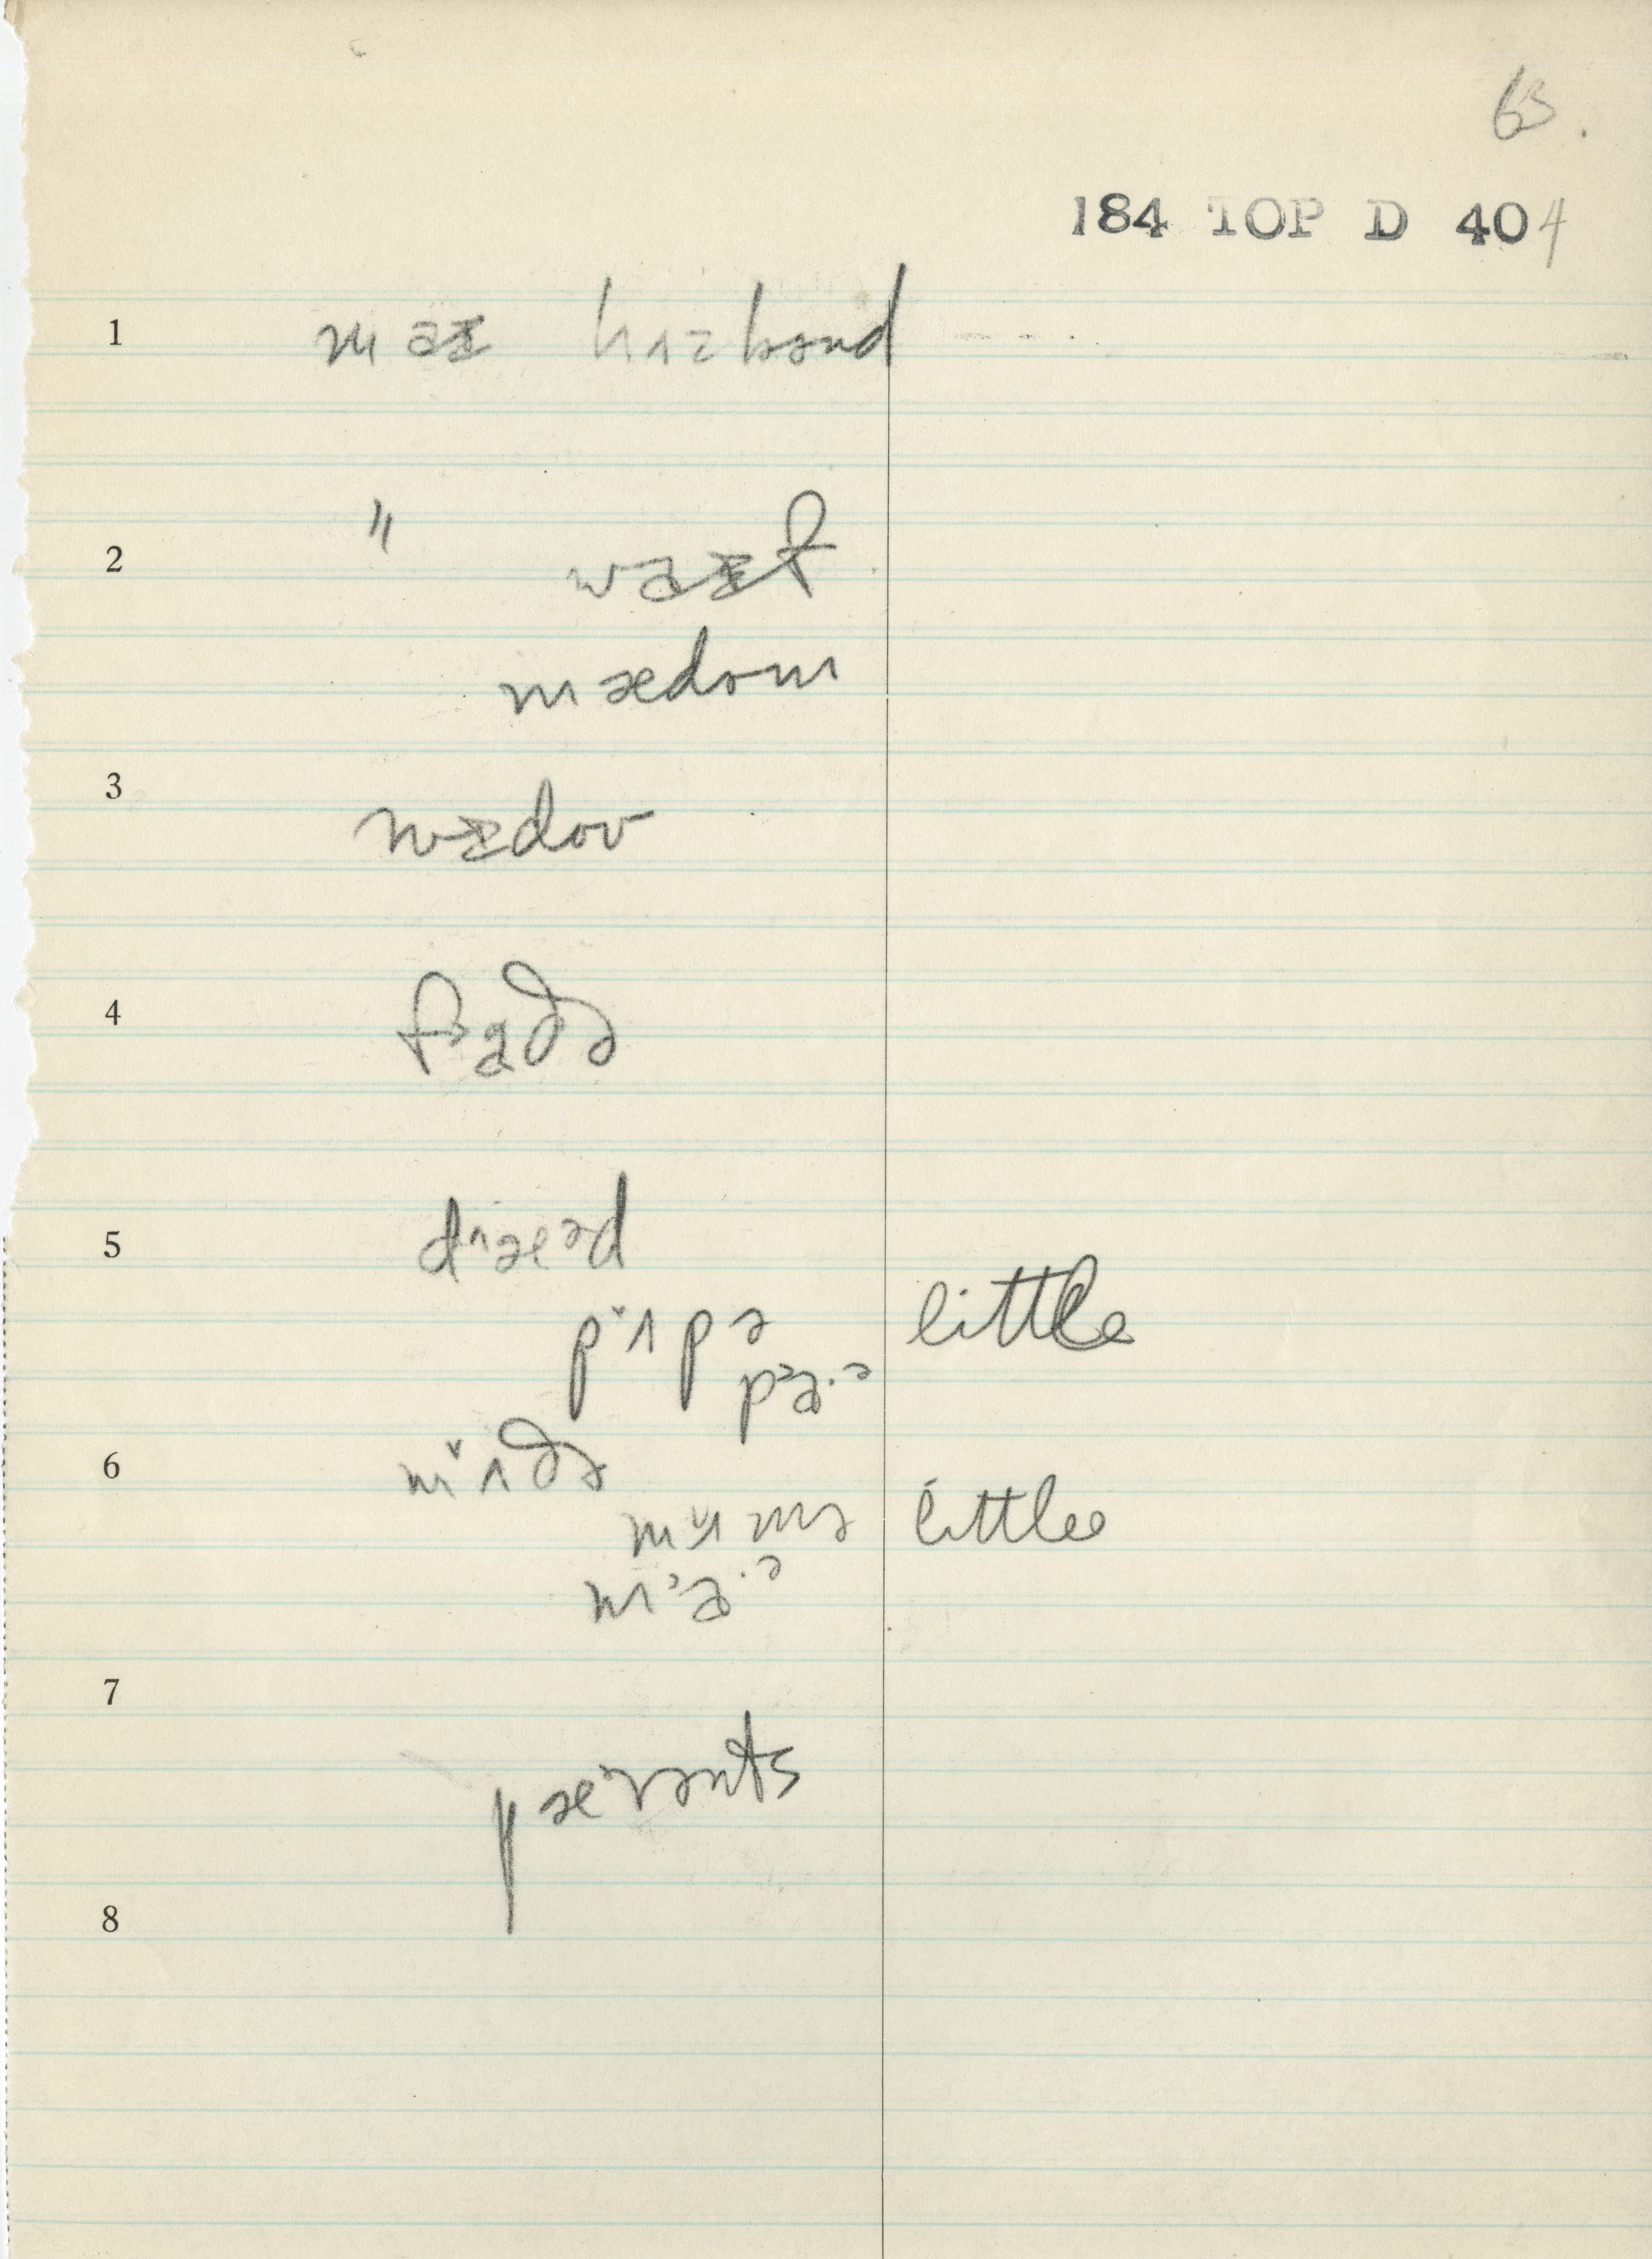 63.
184 TOP D 404
1 maɪ hʌzbənd
2 " waɪf
mædəm
3 wɪdoʊ
4 fɑðə
5 dæəd
pʌpə little
pɑ·ə
6 mʌðə
mʌmə little
mɑ·ə
7
pærənts
8